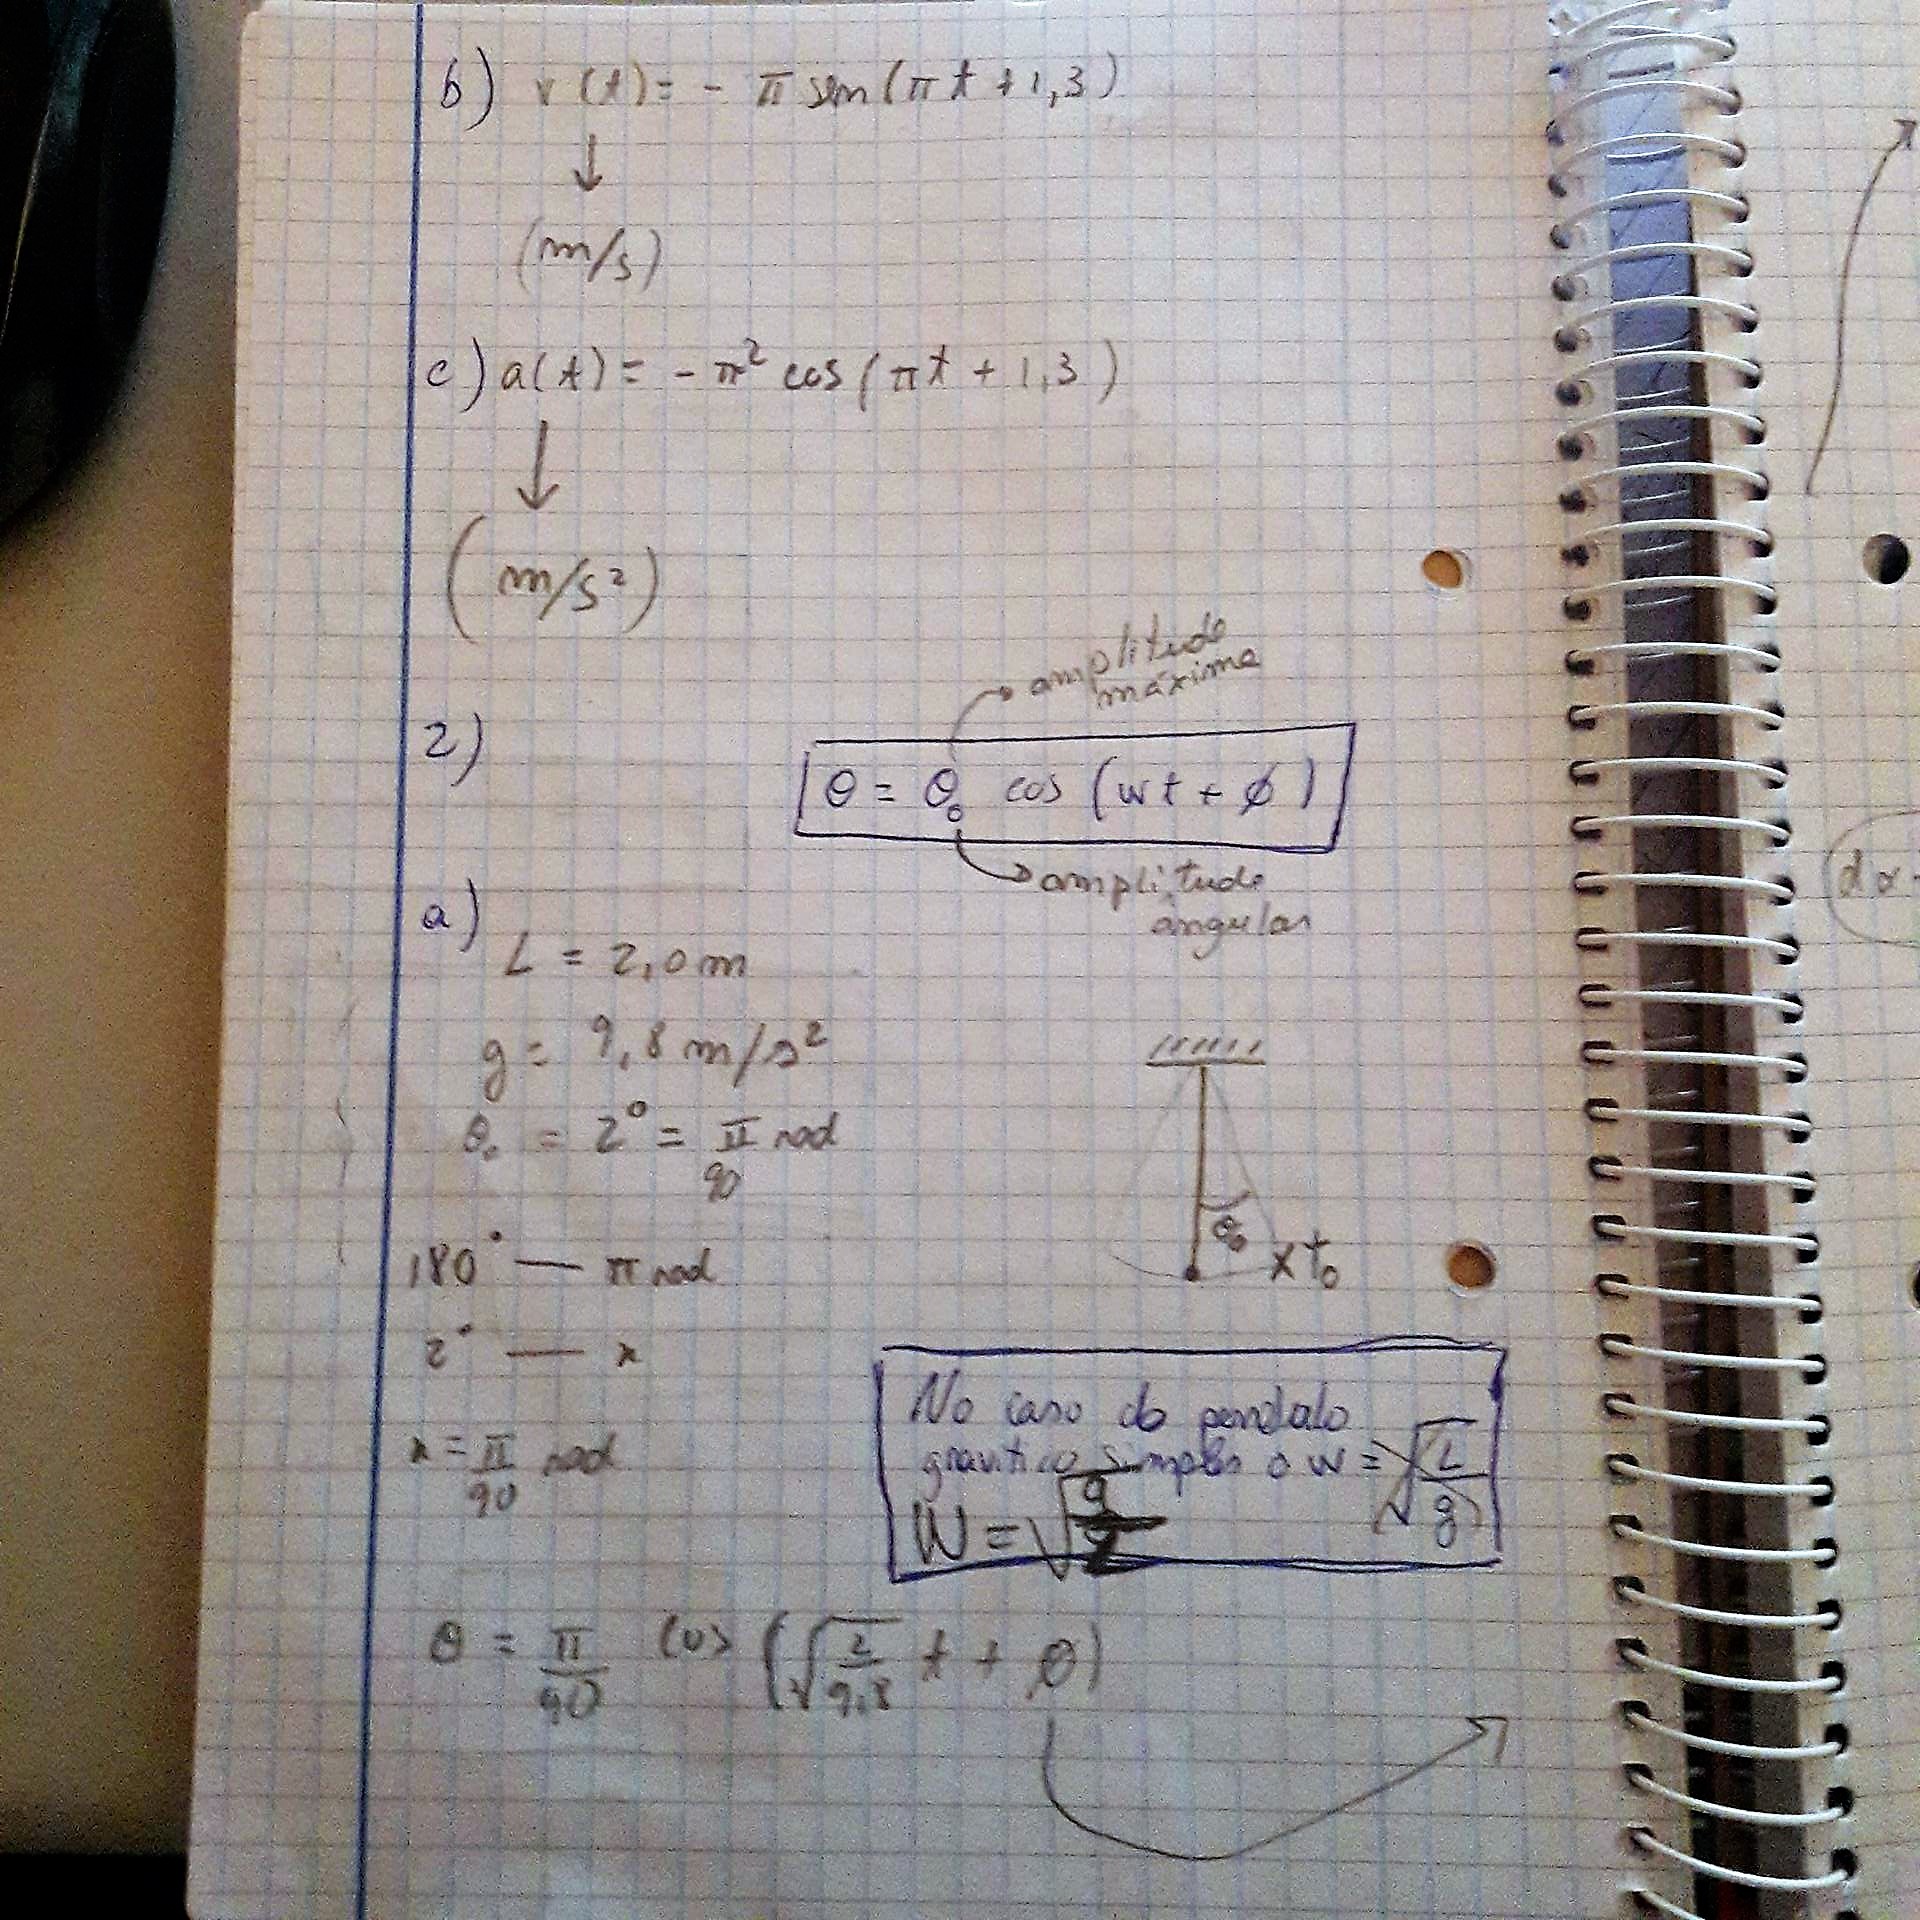 b) v(t) = - π sen(πt + 1,3)
(m/s)
c) a(t) = - π² cos(πt + 1,3)
(m/s²)
amplitude
máxima
2)
θ = θ₀ cos (wt + ϕ)
amplitude
ângular
a)
L = 2,0 m
g = 9,8 m/s²
θ₀ = 2° = π/90 rad
θ₀
x t₀
180° — π rad
2° — x
x = π/90 rad
No caso do pendulo
gravitico simples o w = √(L/g)
W = √
θ = π/90 cos (√(2/9,8) t + ϕ)
dx